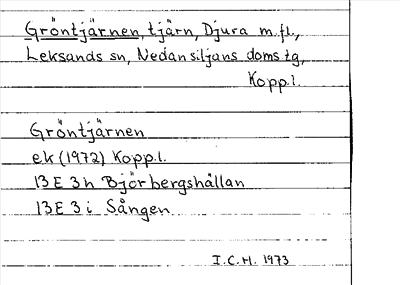 Gröntjärnen, tjärn, Djura m.fl.,
Leksands sn, Nedansiljans doms tg,
Kopp.l.
Gröntjärnen
ek (1972) Kopp.l.
13E 3h Björbergshållan
13E 3i Sången
I.C.H. 1973